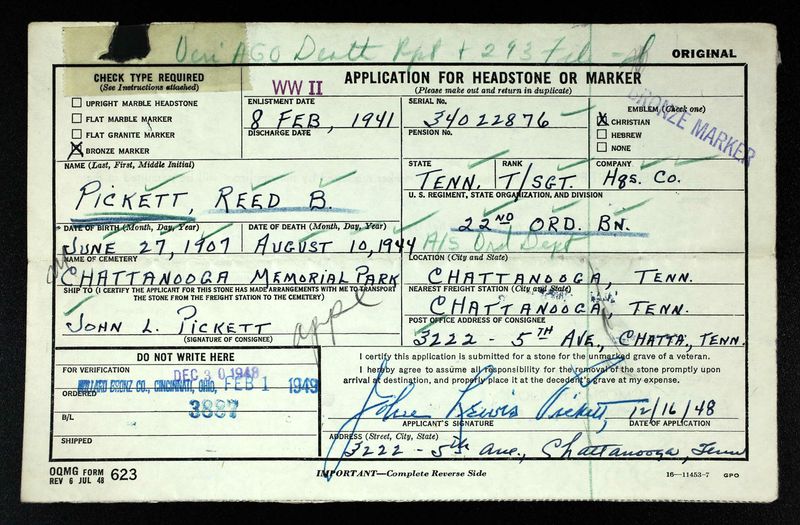 Veri AGO Death Rpt + 293 Fil
ORIGINAL
CHECK TYPE REQUIRED
(See Instructions attached)
UPRIGHT MARBLE HEADSTONE
FLAT MARBLE MARKER
FLAT GRANITE MARKER
BRONZE MARKER
WW II
APPLICATION FOR HEADSTONE OR MARKER
(Please make out and return in duplicate)
ENLISTMENT DATE
8 FEB, 1941
DISCHARGE DATE
SERIAL No.
34022876
PENSION No.
EMBLEM (Check one)
CHRISTIAN
HEBREW
NONE
BRONZE MARKER
NAME (Last, First, Middle Initial)
PICKETT, REED B.
STATE
TENN.
RANK
T/SGT.
COMPANY
Hqs. Co.
U. S. REGIMENT, STATE ORGANIZATION, AND DIVISION
22ND ORD. BN.
A/S Ord Dept
DATE OF BIRTH (Month, Day, Year)
JUNE 27, 1907
DATE OF DEATH (Month, Day, Year)
AUGUST 10, 1944
NAME OF CEMETERY
CHATTANOOGA MEMORIAL PARK
LOCATION (City and State)
CHATTANOOGA, TENN.
SHIP TO (I CERTIFY THE APPLICANT FOR THIS STONE HAS MADE ARRANGEMENTS WITH ME TO TRANSPORT
THE STONE FROM THE FREIGHT STATION TO THE CEMETERY)
JOHN L. PICKETT
(SIGNATURE OF CONSIGNEE)
appl
NEAREST FREIGHT STATION (City and State)
CHATTANOOGA, TENN.
POST OFFICE ADDRESS OF CONSIGNEE
3222 - 5TH AVE., CHATTA., TENN.
DO NOT WRITE HERE
FOR VERIFICATION
DEC 30 1948
ORDERED
CINCINNATI, OHIO, FEB 1 1949
3887
B/L
SHIPPED
I certify this application is submitted for a stone for the unmarked grave of a veteran.
I hereby agree to assume all responsibility for the removal of the stone promptly upon
arrival at destination, and properly place it at the decedent's grave at my expense.
John Lewis Pickett, 12/16/48
APPLICANT'S SIGNATURE
DATE OF APPLICATION
ADDRESS (Street, City, State)
3222 - 5th Ave., Chattanooga, Tenn
OQMG FORM 623
REV 6 JUL 48
IMPORTANT—Complete Reverse Side
16—11453-7 GPO